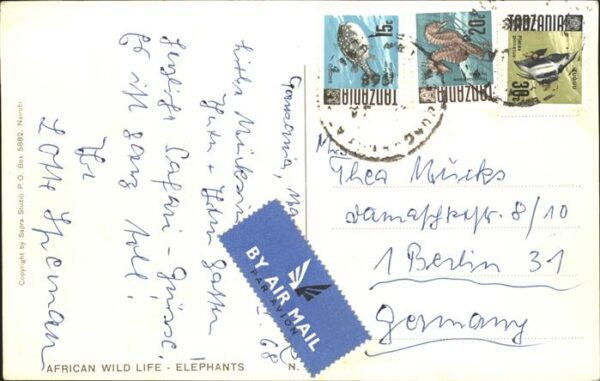 Tansania, Ma
Liebe Mücksin
Herz + Ihren Gatten
68
herzliche Safari-Grüsse.
Es ist ganz toll!
Ihre
Lotte
Thea Mücks
Damaschkestr. 8/10
1 Berlin 31
Germany
BY AIR MAIL
PAR AVION
15c
TANZANIA
20c
TANZANIA
TANZANIA
30c
AFRICAN WILD LIFE - ELEPHANTS
N.
Copyright by Sapra Studio P.O. Box 5882, Nairobi